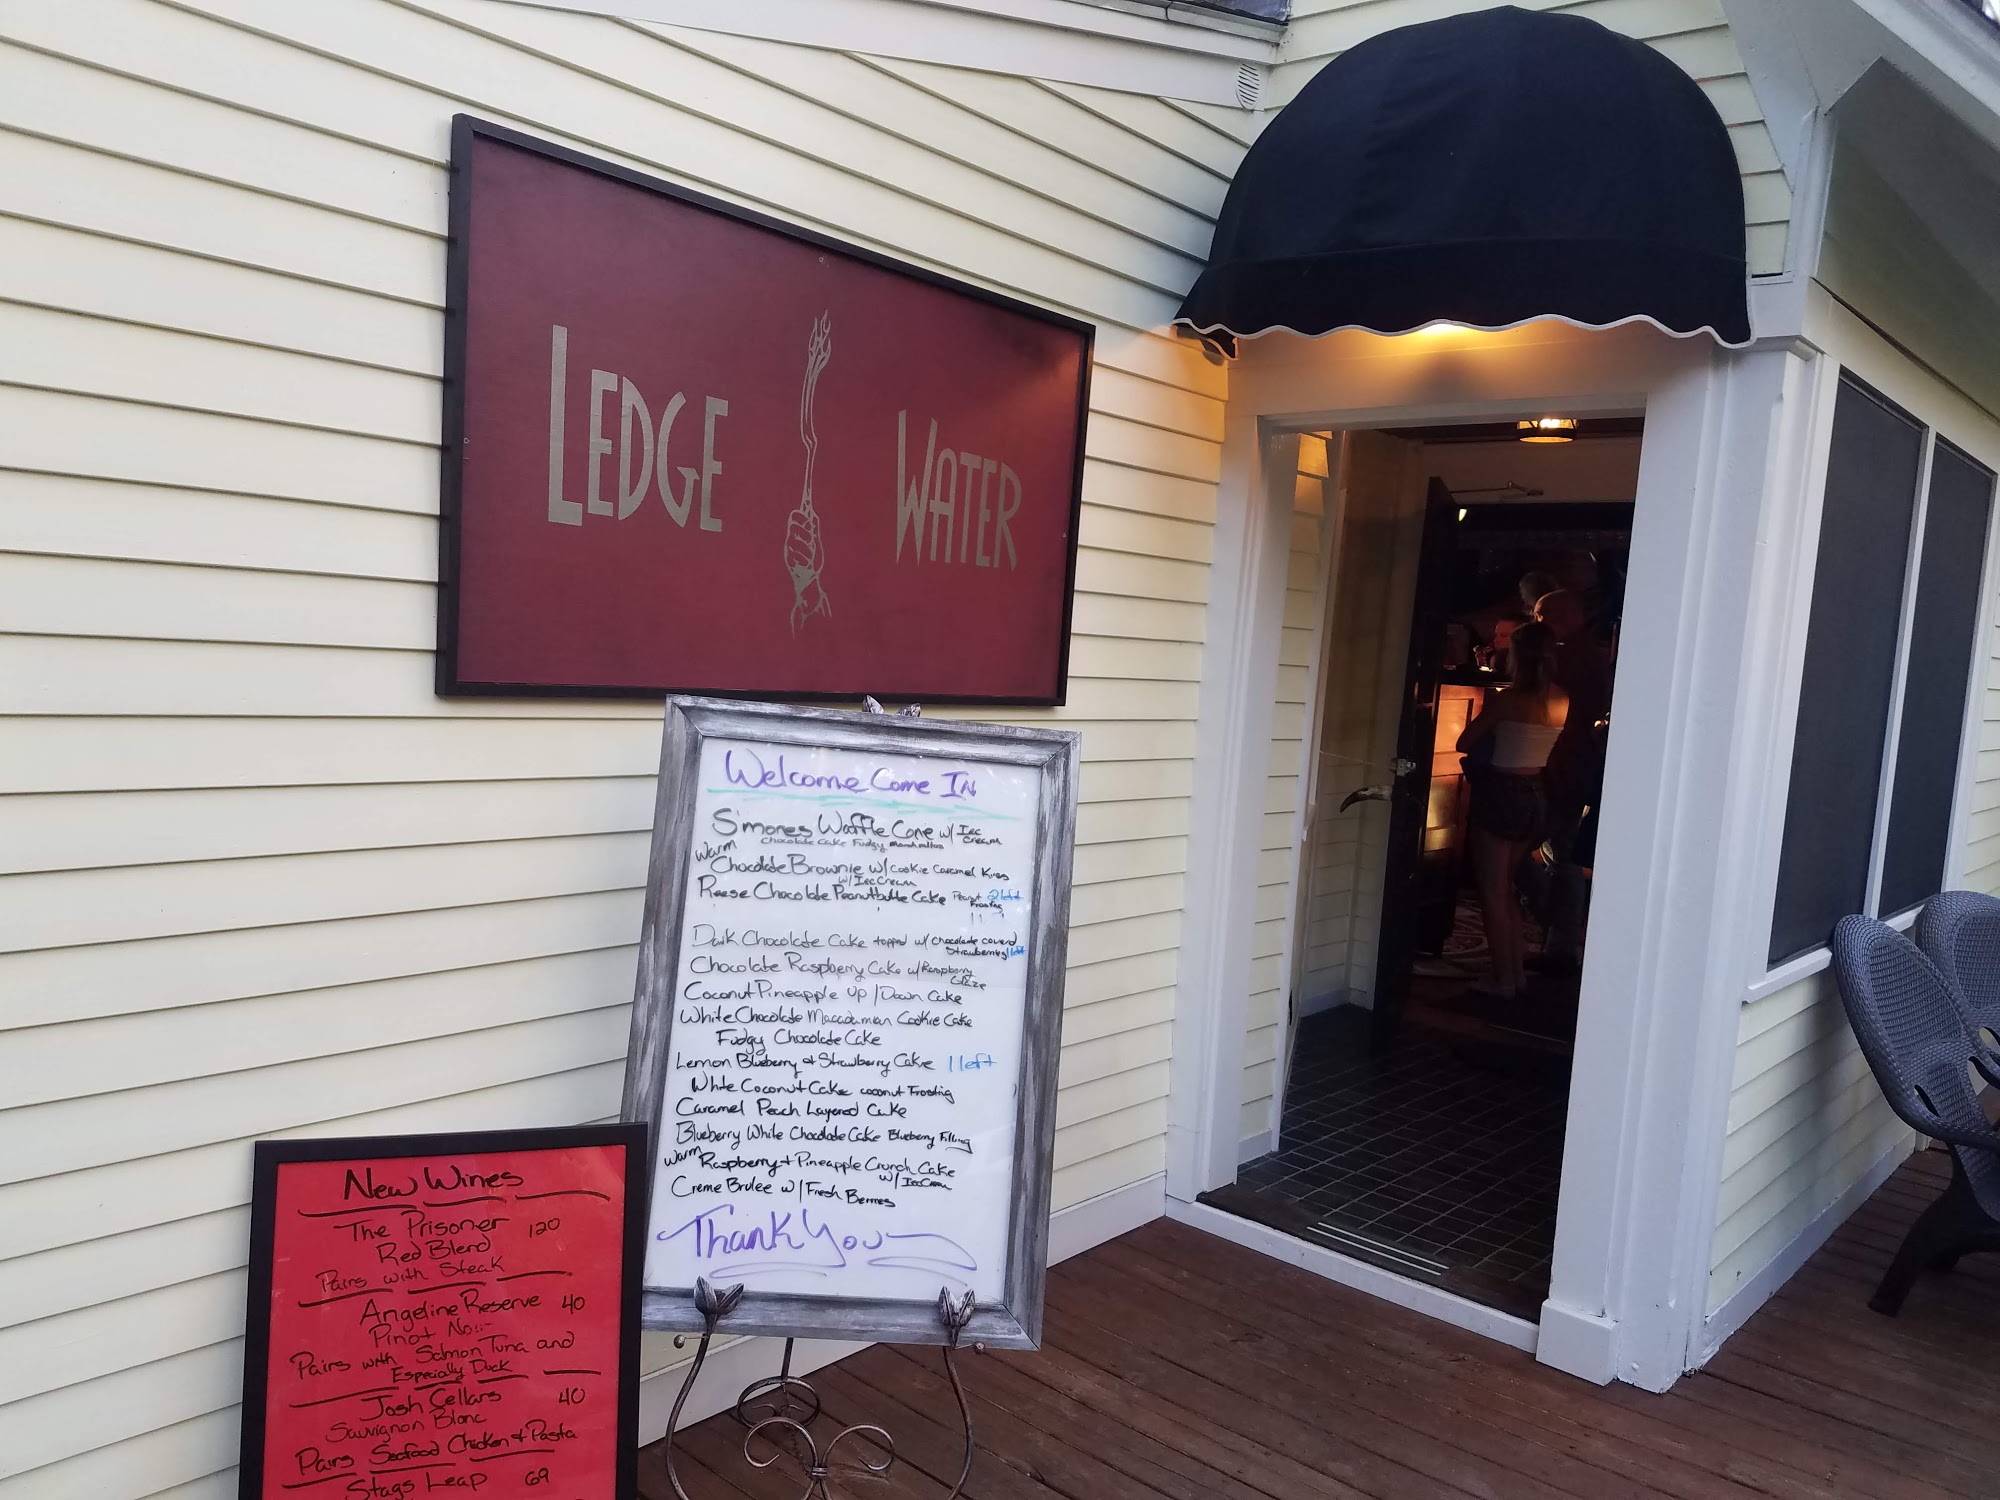 LEDGE WATER
Welcome Come IN
S'mores Waffle Cone w/ Ice Cream
Chocolate Cake Fudgy Marshmallow
Warm
Chocolate Brownie w/ Cookie Caramel
w/ Ice Cream
Reese Chocolate Peanutbutter Cake Peanut Frosting 2 left
Dark Chocolate Cake topped w/ chocolate coverd
Strawberries 1 left
Chocolate Raspberry Cake w/ Raspberry
Glaze
Coconut Pineapple Up/Down Cake
White Chocolate Macadamian Cookie Cake
Fudgy Chocolate Cake
Lemon Blueberry + Strawberry Cake 1 left
White Coconut Cake coconut Frosting
Caramel Peach Layered Cake
Blueberry White Chocolate Cake Blueberry Filling
Warm Raspberry + Pineapple Crunch Cake
w/ Ice Cream
Creme Brulee w/ Fresh Berries
Thank You
New Wines
The Prisoner 120
Red Blend
Pairs with Steak
Angeline Reserve 40
Pinot
Pairs with Salmon Tuna and
Especially Duck
Josh Cellars 40
Sauvignon Blanc
Pairs Seafood Chicken + Pasta
Stags Leap 69